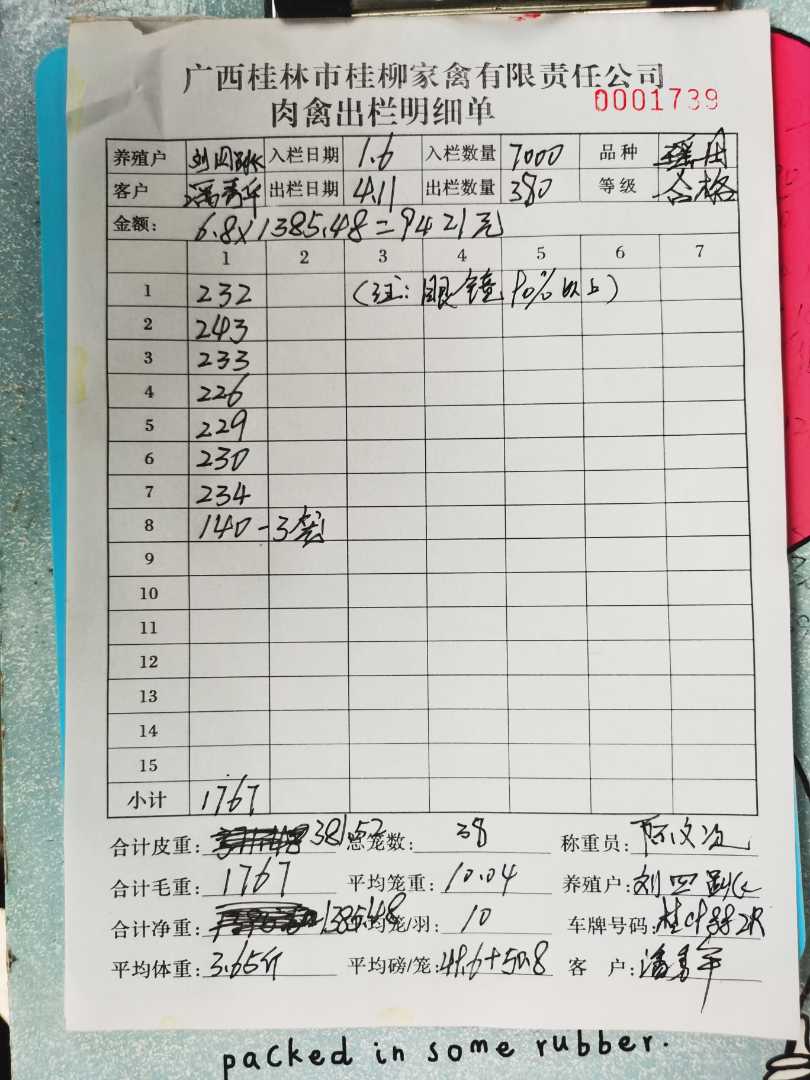 广西桂林市桂柳家禽有限责任公司
肉禽出栏明细单 0001739
养殖户 刘四 入栏日期 1.6 入栏数量 7000 品种
客户 潘 出栏日期 4.11 出栏数量 380 等级 合格
金额: 6.8×1385.48=9421元
1 2 3 4 5 6 7
1 232 (注: 眼镜90%以上)
2 243
3 233
4 226
5 229
6 230
7 234
8 140-3
9
10
11
12
13
14
15
小计 1767
合计皮重: 381.52 总笼数: 38 称重员:
合计毛重: 1767 平均笼重: 10.04 养殖户: 刘四
合计净重: 1385.48 平均笼/羽: 10 车牌号码:
平均体重: 3.65斤 平均磅/笼: 客 户: 潘
packed in some rubber.